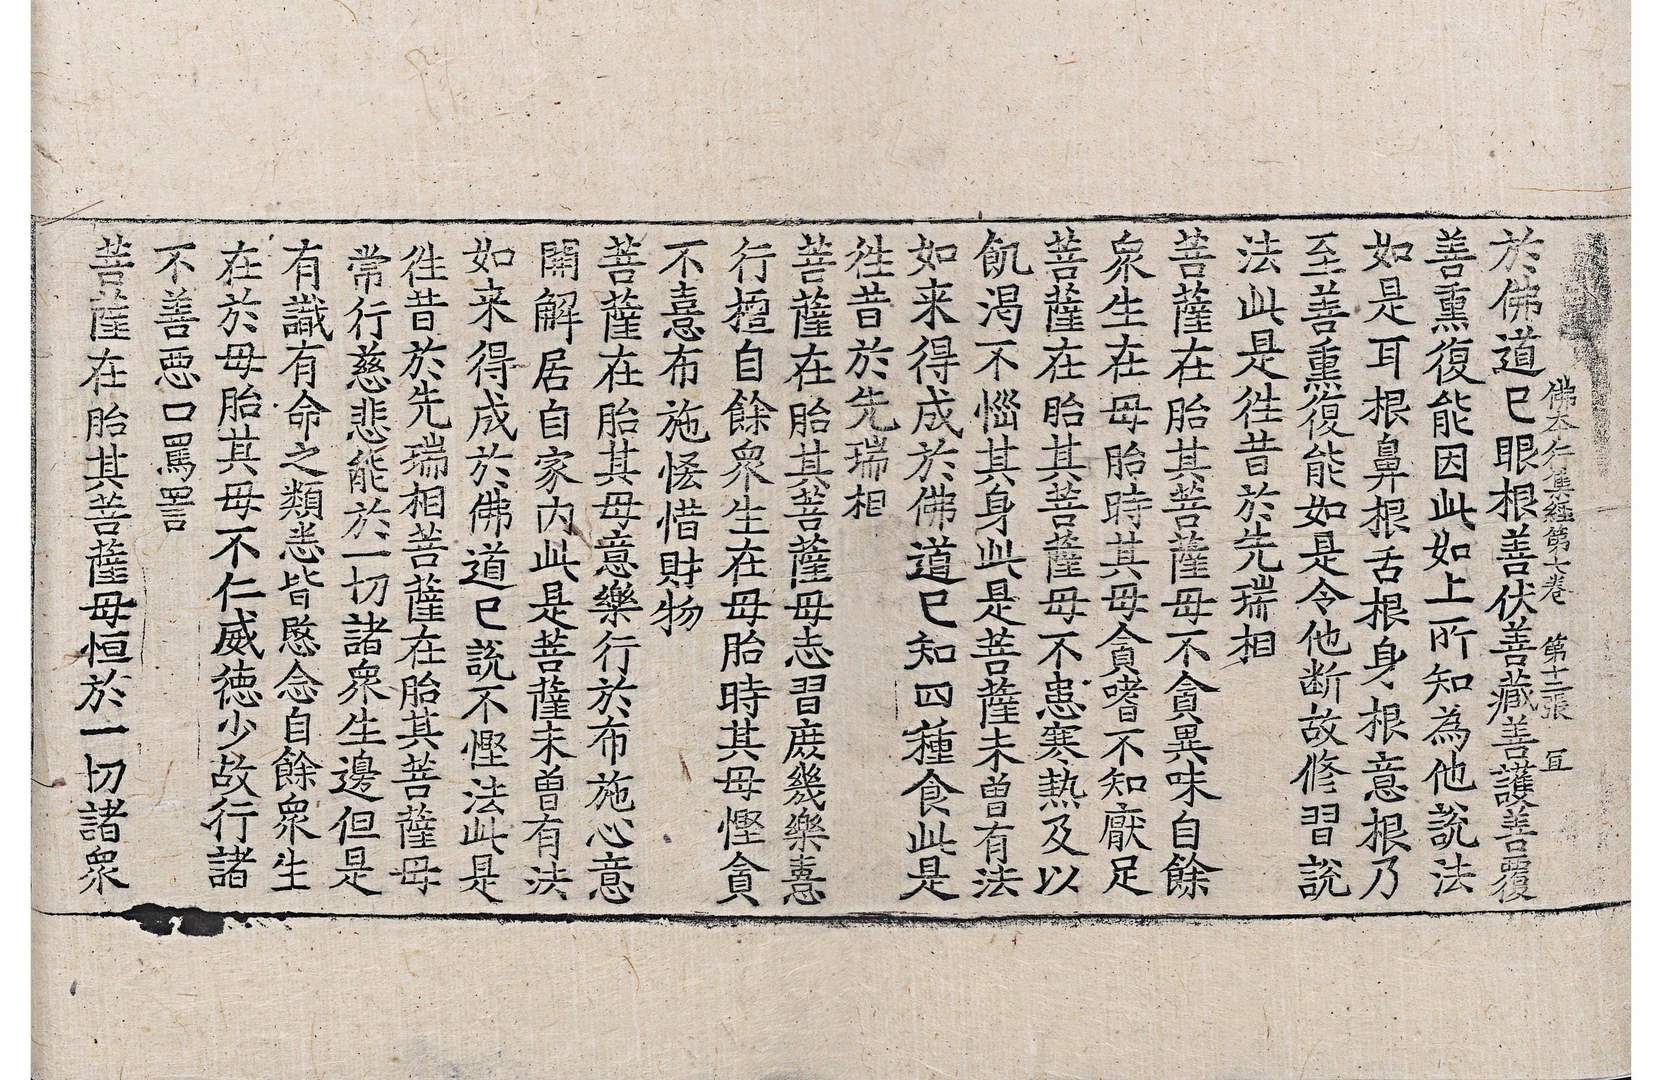 佛本行集經第七卷　第十二張　宜
於佛道已眼根善伏善藏善護善覆
善熏復能因此如上所知為他說法
如是耳根鼻根舌根身根意根乃
至善熏復能如是令他断故修習說
法此是徃昔於先瑞相
菩薩在胎其菩薩母不貪異味自餘
衆生在母胎時其母貪嗜不知厭足
菩薩在胎其菩薩母不患寒熱及以
飢渴不惱其身此是菩薩未曾有法
如来得成於佛道已知四種食此是
徃昔於先瑞相
菩薩在胎其菩薩母志習庶幾樂憙
行檀自餘衆生在母胎時其母慳貪
不憙布施恡惜財物
菩薩在胎其母意樂行於布施心意
開解居自家内此是菩薩未曾有法
如来得成於佛道已說不慳法此是
徃昔於先瑞相菩薩在胎其菩薩母
常行慈悲能於一切諸衆生邊但是
有識有命之類悉皆愍念自餘衆生
在於母胎其母不仁威徳少故行諸
不善惡口罵詈
菩薩在胎其菩薩母恒於一切諸衆